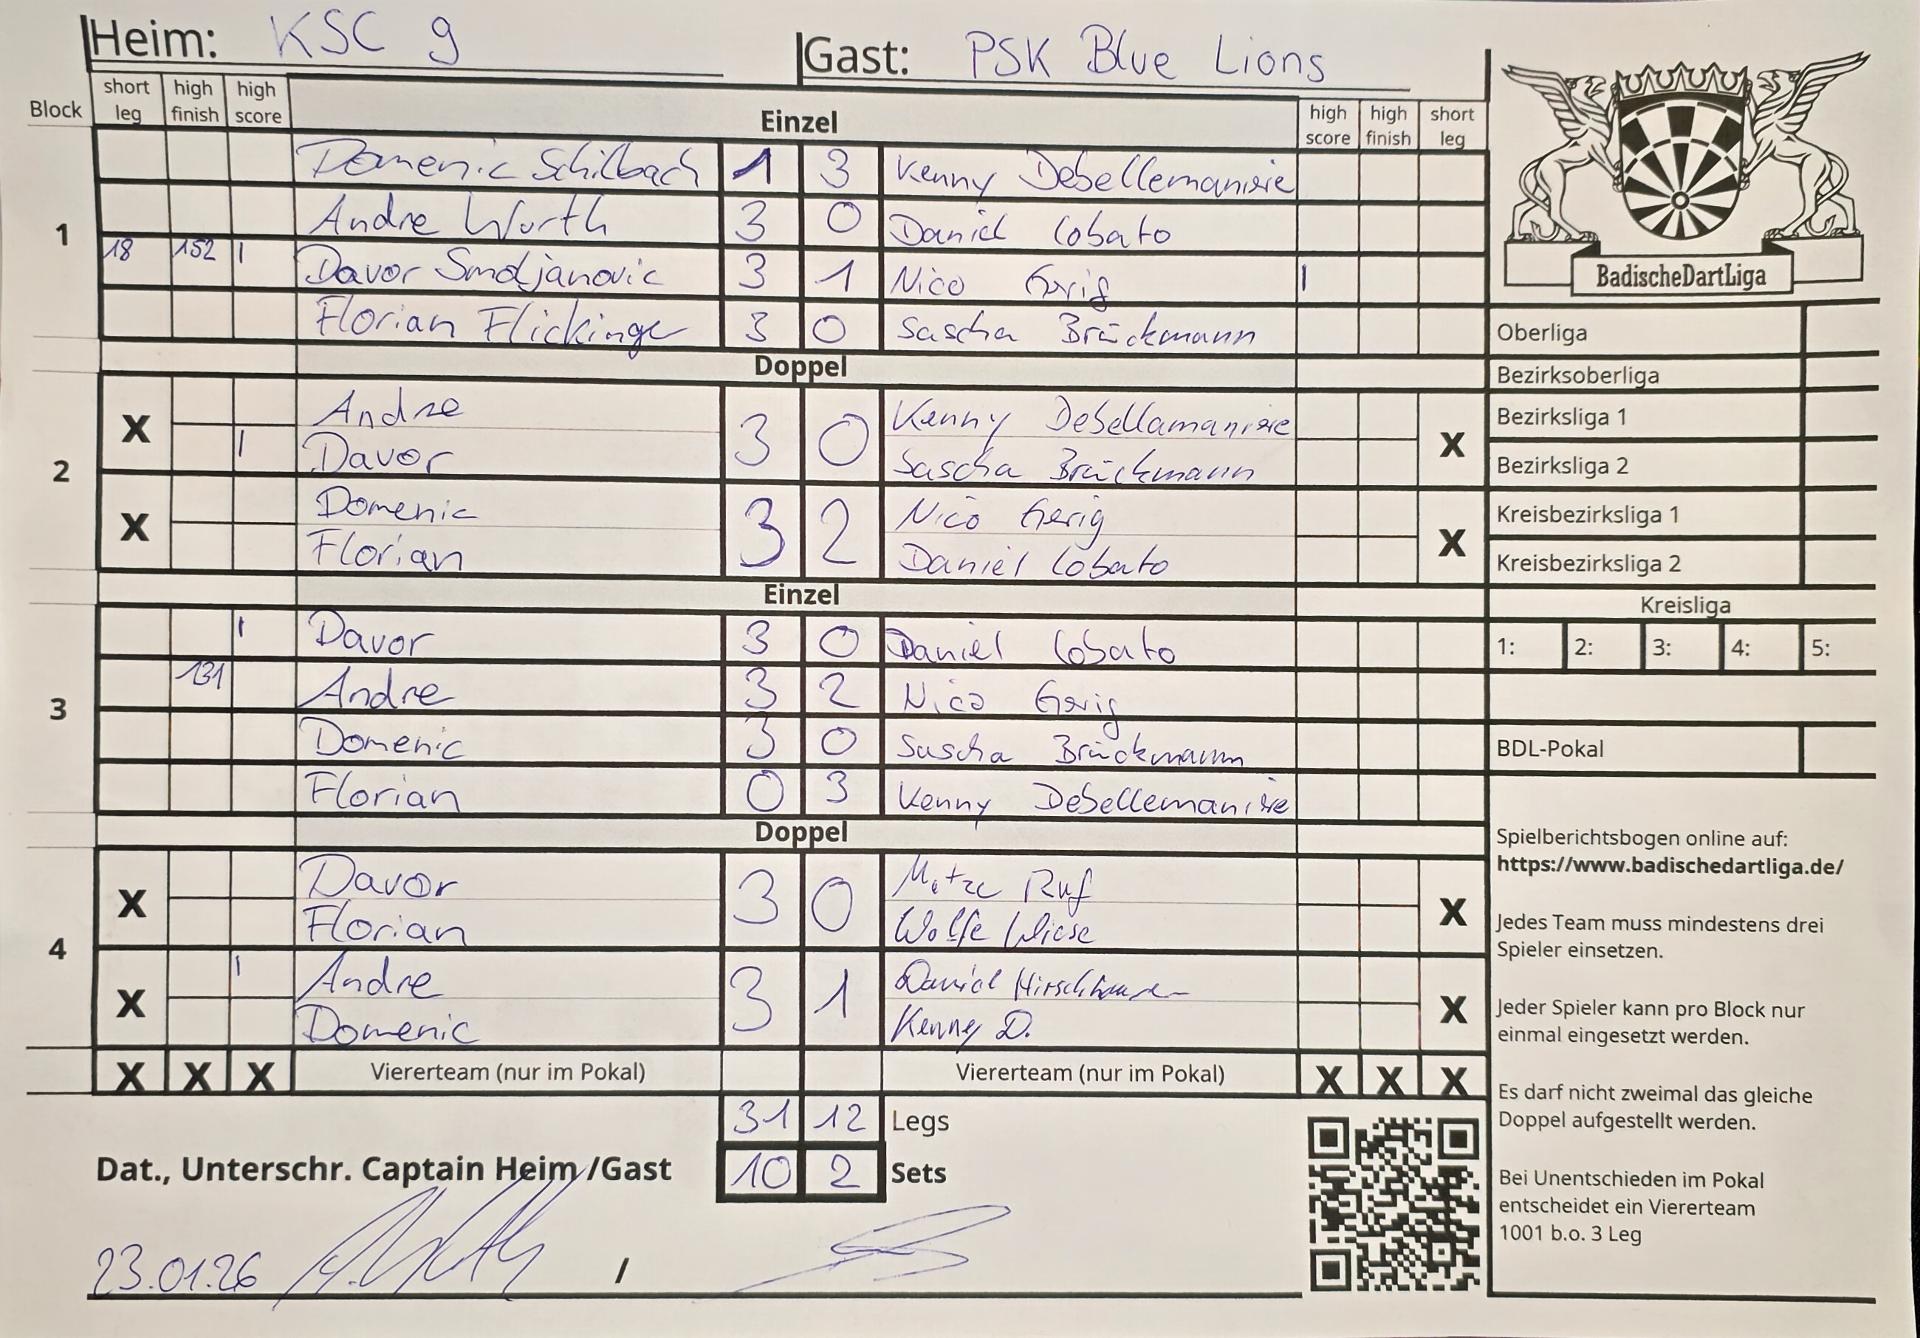 Heim: KSC 9 Gast: PSK Blue Lions
Block short leg high finish high score Einzel high score high finish short leg
1
Domenic Schilbach 1 3 Kenny Debellemanière
Andre Wurth 3 0 Daniel Lobato
18 152 I Davor Smoljanovic 3 1 Nico Gerig I
Florian Flickinger 3 0 Sascha Brückmann
Doppel
2
X Andre 3 0 Kenny Debellamanière X
I Davor Sascha Brückmann
X Domenic 3 2 Nico Gerig X
Florian Daniel Lobato
Einzel
3
I Davor 3 0 Daniel Lobato
131 Andre 3 2 Nico Gerig
Domenic 3 0 Sascha Brückmann
Florian 0 3 Kenny Debellemanière
Doppel
4
X Davor 3 0 Matze Ruf X
Florian Wolfe Wiese
X I Andre 3 1 Daniel X
Domenic Kenny D.
X X X Viererteam (nur im Pokal) Viererteam (nur im Pokal) X X X
31 12 Legs
10 2 Sets
Dat., Unterschr. Captain Heim /Gast
23.01.26 /
BadischeDartLiga
Oberliga
Bezirksoberliga
Bezirksliga 1
Bezirksliga 2
Kreisbezirksliga 1
Kreisbezirksliga 2
Kreisliga
1: 2: 3: 4: 5:
BDL-Pokal
Spielberichtsbogen online auf:
https://www.badischedartliga.de/
Jedes Team muss mindestens drei
Spieler einsetzen.
Jeder Spieler kann pro Block nur
einmal eingesetzt werden.
Es darf nicht zweimal das gleiche
Doppel aufgestellt werden.
Bei Unentschieden im Pokal
entscheidet ein Viererteam
1001 b.o. 3 Leg